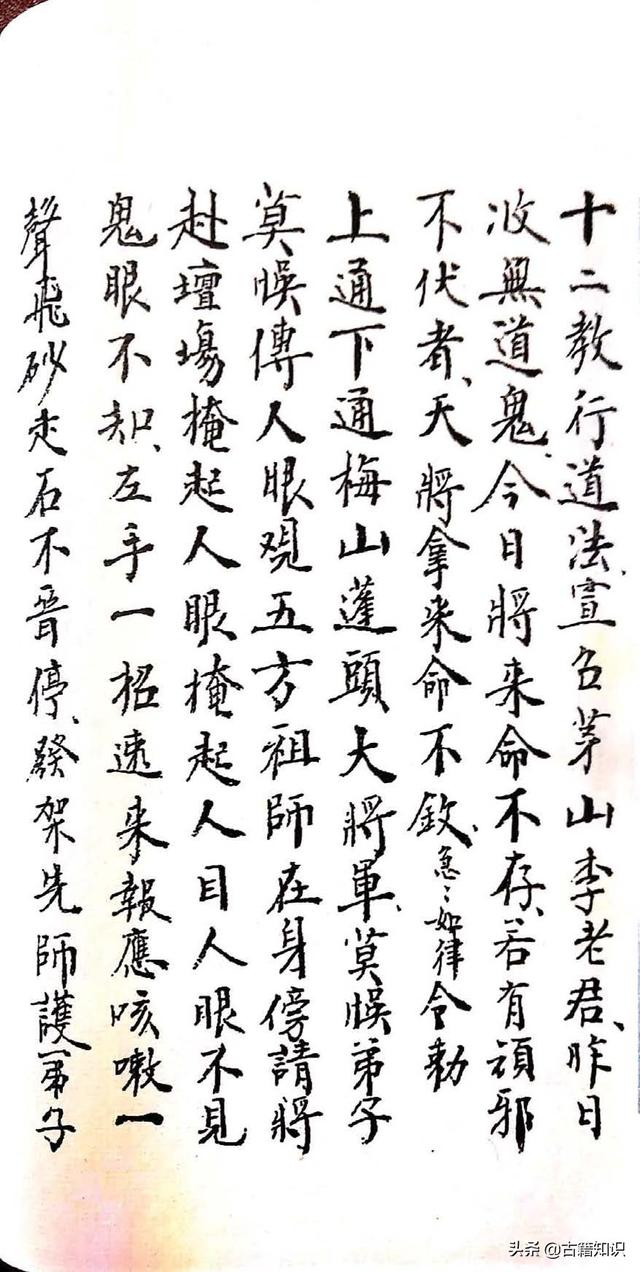 十二教行道法、宣召茅山李老君、昨日
收無道鬼、今日將来命不存、若有頑邪
不伏者、天將拿来命不𨥧、急〻如律令勅
上通下通梅山蓬頭大將軍、莫悮弟子
莫悮傳人眼观五方祖師在身傍請將
赴壇塲掩起人眼掩起人目人眼不見
鬼眼不知、左手一招速来報應咳嗽一
聲飛砂走石不晋停、發架先師護弟子
头条 @古籍知识